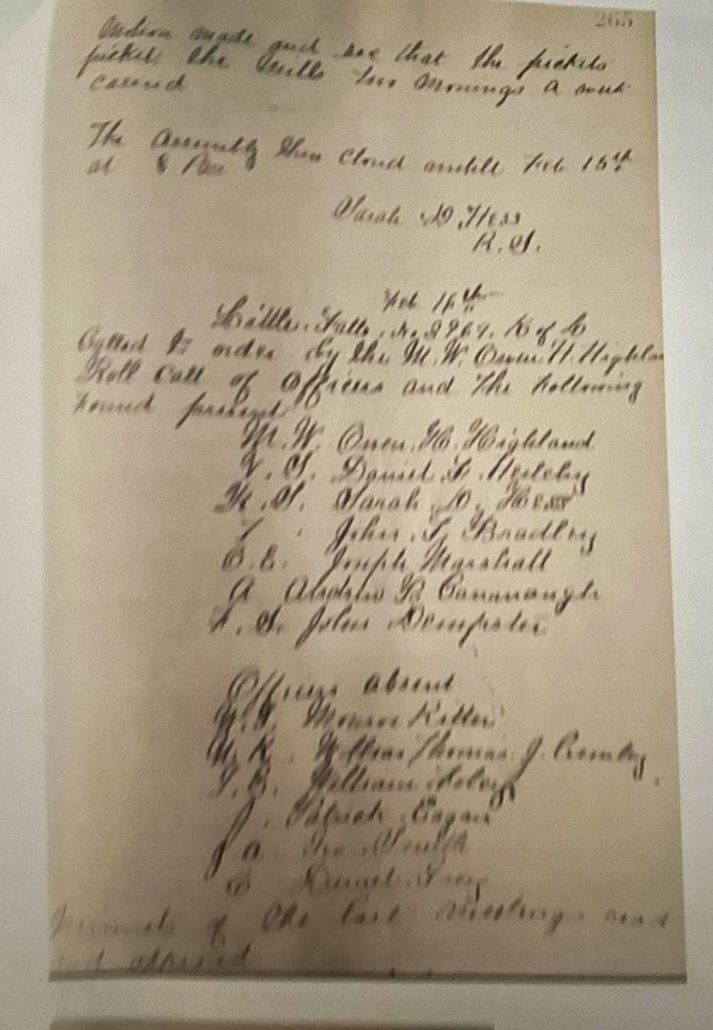 265
Motion made and sec that the pickets
picket the Mills two Mornings a week
caried
The Assembly then Cloud untill Feb 16th
at 8 Pm
Sarah D. Hess
R. S.
Feb 16th
Little Falls, No 2964. K of L
Called to order by the M. W. Owen H. Highland
Roll Call of Officers and The following
found present
M. W. Owen. H. Highland
V. S. Daniel
R. S. Sarah D. Hess
T. John. S. Bradley
Joseph Marshall
A Andrew B Cavanaugh
F. S. John Dempster
Officers absent
Monroe Ritter
U. K. Thomas J. Crowley
William
J. Patrick Eagan
Daniel
of the last meetings read